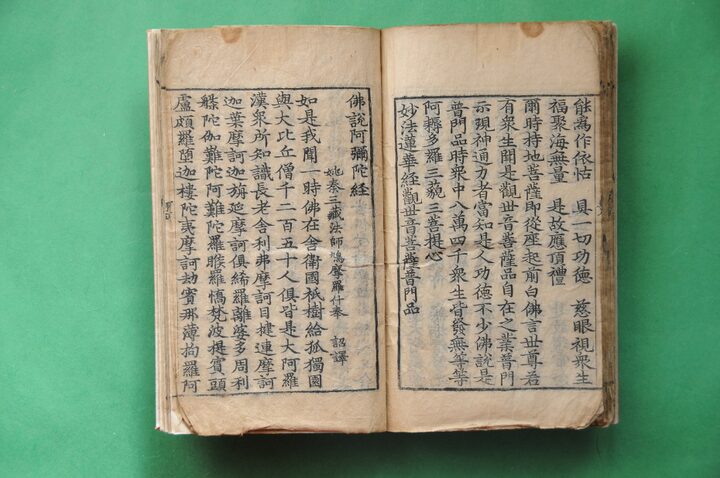 能為作依怙 具一切功德 慈眼視衆生
福聚海無量 是故應頂禮
爾時持地菩薩即從座起前白佛言世尊若
有衆生聞是觀世音菩薩品自在之業普門
示現神通力者當知是人功德不少佛說是
普門品時衆中八萬四千衆生皆發無等等
阿耨多羅三藐三菩提心
妙法蓮華經觀世音菩薩普門品
佛說阿彌陀經
姚秦三藏法師鳩摩羅什奉 詔譯
如是我聞一時佛在舍衛國祇樹給孤獨園
與大比丘僧千二百五十人俱皆是大阿羅
漢衆所知識長老舍利弗摩訶目揵連摩訶
迦葉摩訶迦旃延摩訶俱絺羅離婆多周利
槃陀伽難陀阿難陀羅睺羅憍梵波提賓頭
盧頗羅墮迦樓陀夷摩訶劫賓那薄拘羅阿